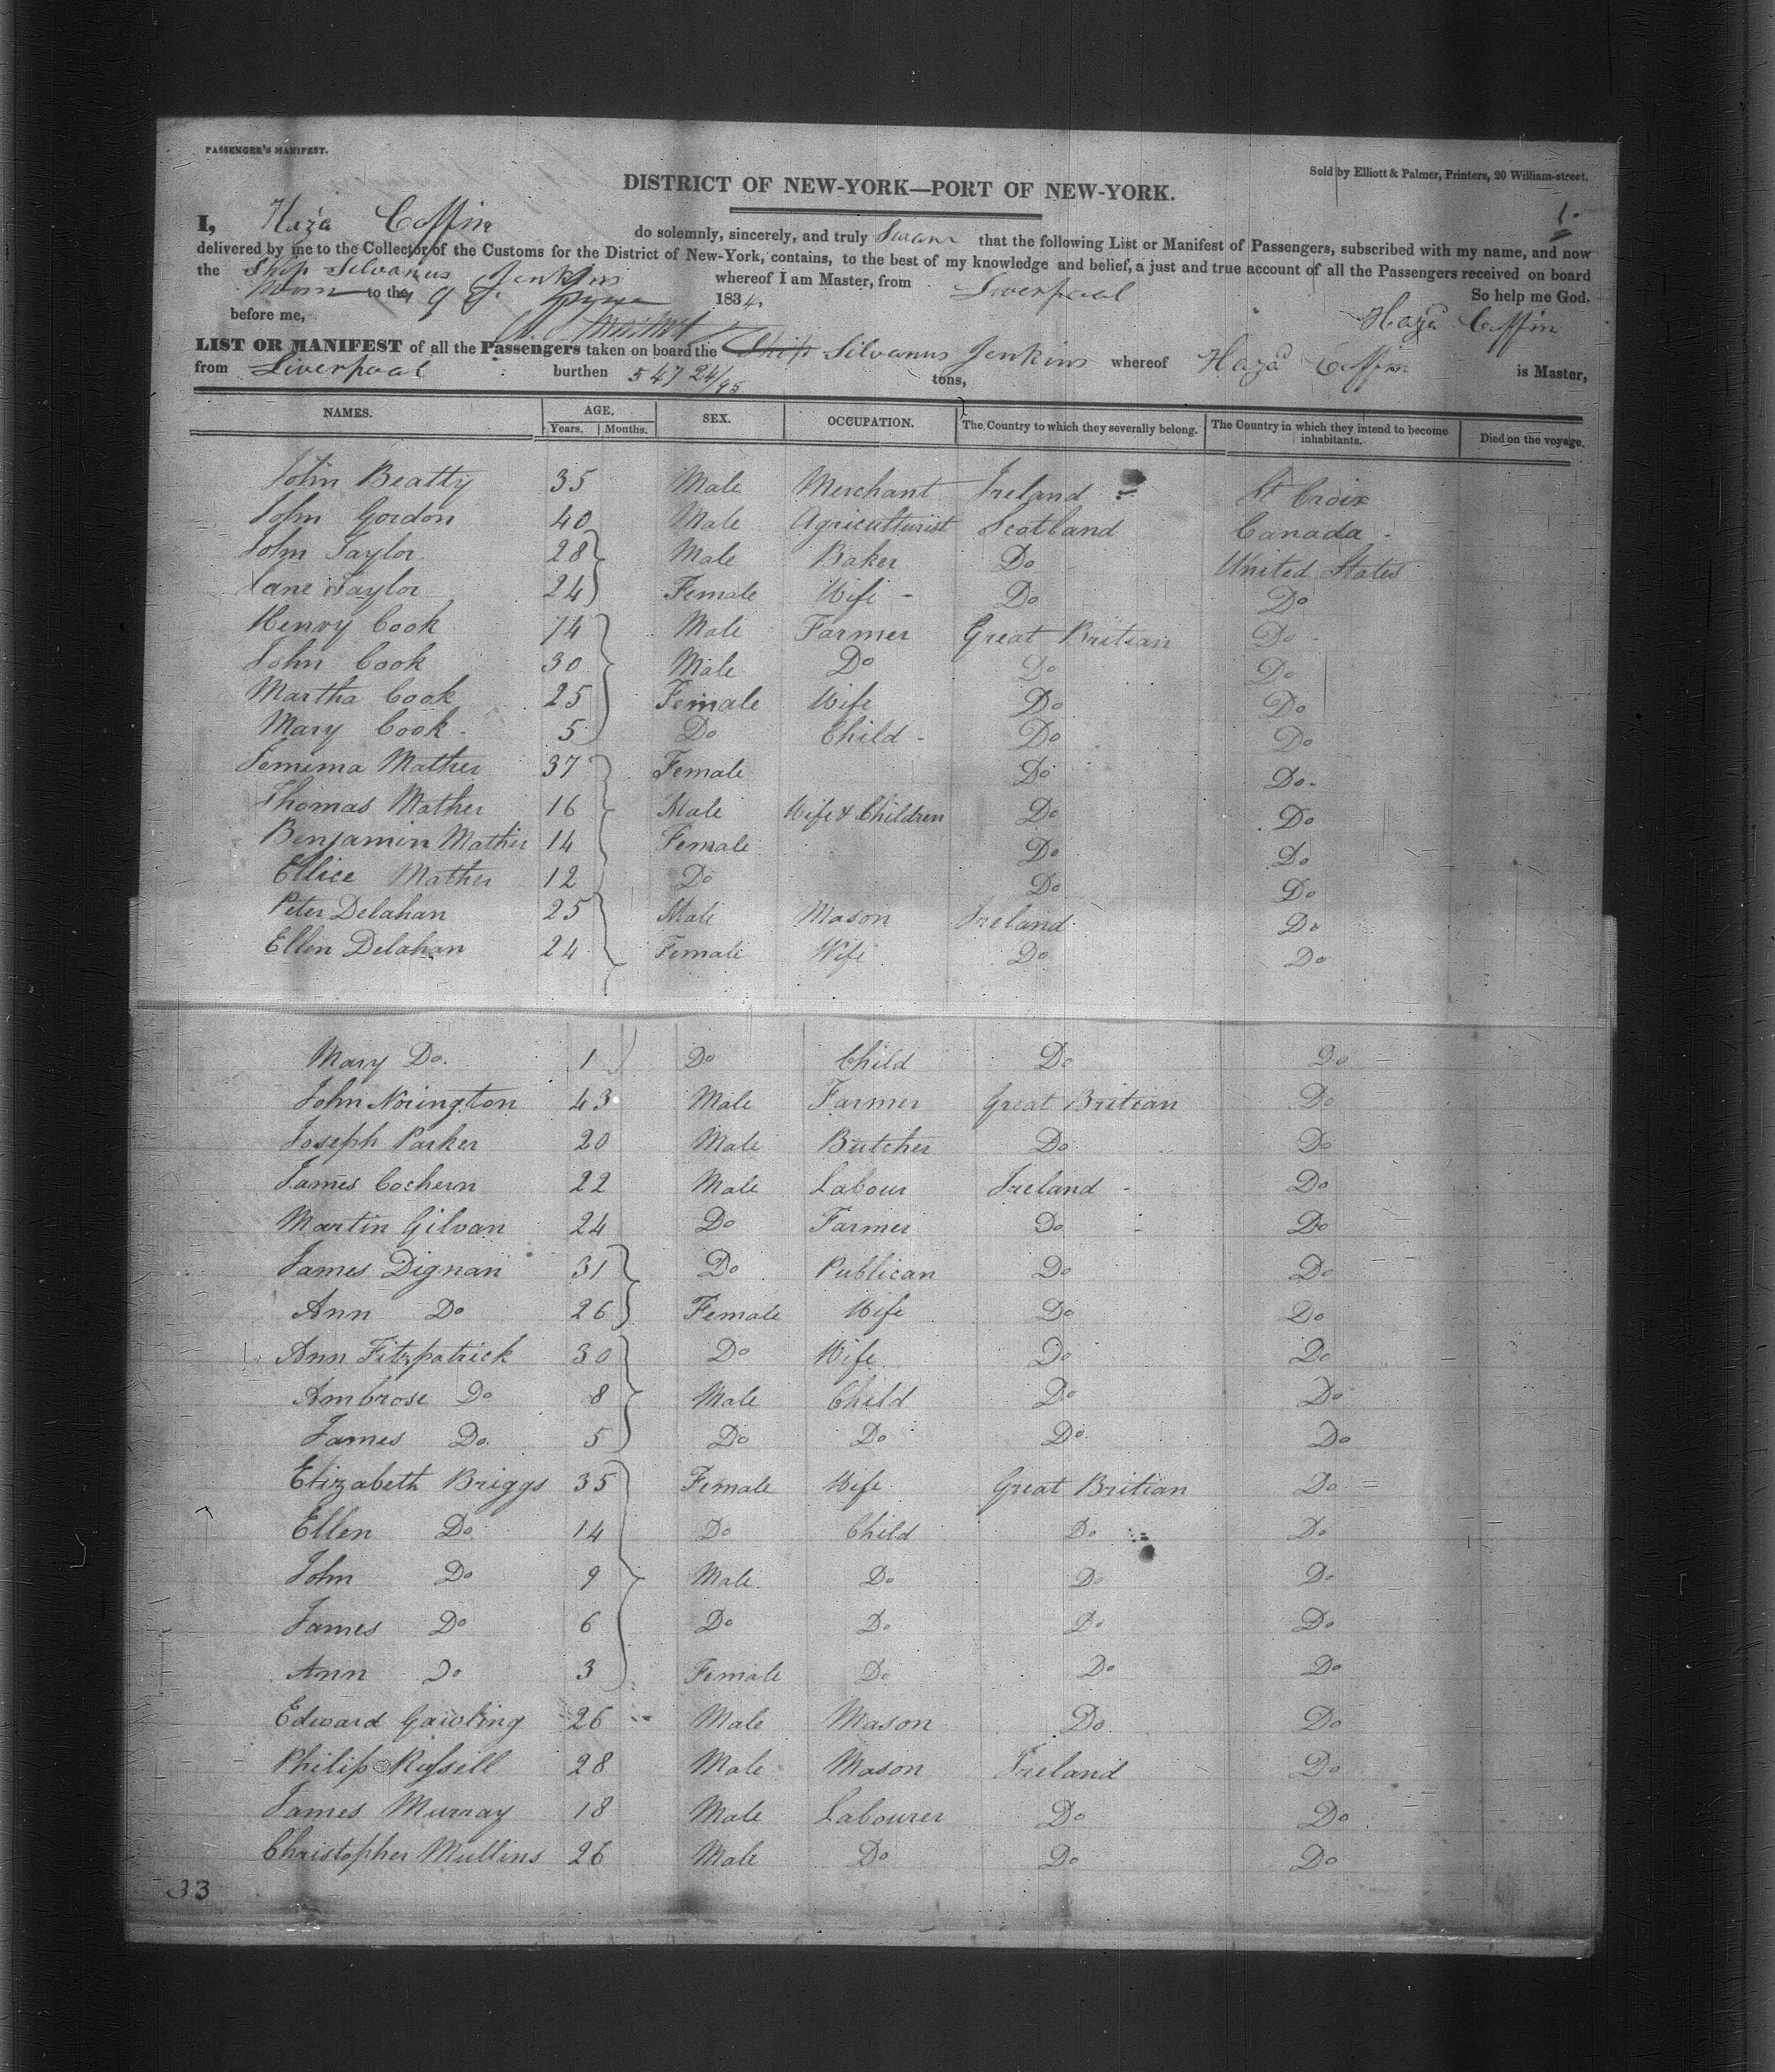 PASSENGER'S MANIFEST.
Sold by Elliott & Palmer, Printers, 20 William-street.
DISTRICT OF NEW-YORK—PORT OF NEW-YORK.
1.
I, Haza Coffin do solemnly, sincerely, and truly Swear that the following List or Manifest of Passengers, subscribed with my name, and now
delivered by me to the Collector of the Customs for the District of New-York, contains, to the best of my knowledge and belief, a just and true account of all the Passengers received on board
the Ship Silvanus Jenkins whereof I am Master, from Liverpool
Sworn to the 9 1834. So help me God.
before me, Haza Coffin
LIST OR MANIFEST of all the Passengers taken on board the Ship Silvanus Jenkins whereof Haza Coffin is Master,
from Liverpool burthen 547 24/95 tons,
NAMES. AGE. Years. Months. SEX. OCCUPATION. The Country to which they severally belong. The Country in which they intend to become inhabitants. Died on the voyage.
John Beatty 35 Male Merchant Ireland St Croix
John Gordon 40 Male Agriculturist Scotland Canada
John Taylor 28 Male Baker Do United States
Jane Taylor 24 Female Wife Do Do
Henry Cook 74 Male Farmer Great Britian Do
John Cook 30 Male Do Do Do
Martha Cook 25 Female Wife Do Do
Mary Cook 5 Do Child Do Do
Jemima Mather 37 Female Do Do
Thomas Mather 16 Male Wife & Children Do Do
Benjamin Mather 14 Female Do Do
Ellice Mather 12 Do Do Do
Peter Delahan 25 Male Mason Ireland Do
Ellen Delahan 24 Female Wife Do Do
Mary Do. 1 Do Child Do Do
John Norington 43 Male Farmer Great Britian Do
Joseph Parker 20 Male Butcher Do Do
James Cochern 22 Male Labour Ireland Do
Martin Gilvan 24 Do Farmer Do Do
James Dignan 31 Do Publican Do Do
Ann Do 26 Female Wife Do Do
Ann Fitzpatrick 30 Do Wife Do Do
Ambrose Do 8 Male Child Do Do
James Do. 5 Do Do Do Do
Elizabeth Briggs 35 Female Wife Great Britian Do
Ellen Do 14 Do Child Do Do
John Do 9 Male Do Do Do
James Do 6 Do Do Do Do
Ann Do 3 Female Do Do Do
Edward Gawling 26 Male Mason Do Do
Philip Russell 28 Male Mason Ireland Do
James Murray 18 Male Labourer Do Do
Christopher Mullins 26 Male Do Do Do
33